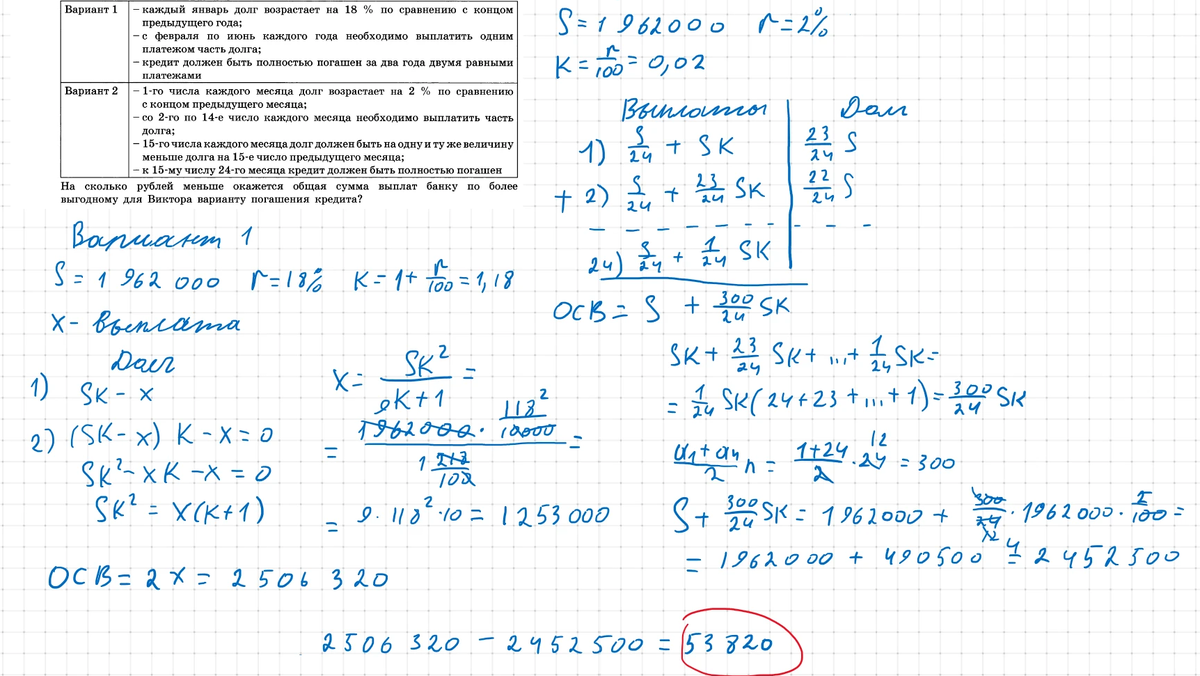 Вариант 1
– каждый январь долг возрастает на 18 % по сравнению с концом
предыдущего года;
– с февраля по июнь каждого года необходимо выплатить одним
платежом часть долга;
– кредит должен быть полностью погашен за два года двумя равными
платежами
Вариант 2
– 1-го числа каждого месяца долг возрастает на 2 % по сравнению
с концом предыдущего месяца;
– со 2-го по 14-е число каждого месяца необходимо выплатить часть
долга;
– 15-го числа каждого месяца долг должен быть на одну и ту же величину
меньше долга на 15-е число предыдущего месяца;
– к 15-му числу 24-го месяца кредит должен быть полностью погашен
На сколько рублей меньше окажется общая сумма выплат банку по более
выгодному для Виктора варианту погашения кредита?
Вариант 1
S = 1 962 000 r = 18% K = 1 + r/100 = 1,18
x - выплата
Долг
1) SK - x
2) (SK - x) K - x = 0
SK² - xK - x = 0
SK² = x(K+1)
x = SK²/(K+1) =
= 1962000 · 118²/10000 / =
= 9 · 118² · 10 = 1253000
ОСВ = 2x = 2 506 320
S = 1 962000 r = 2%
K = r/100 = 0,02
Выплаты Долг
1) S/24 + SK 23/24 S
+ 2) S/24 + 23/24 SK 22/24 S
24) S/24 + 1/24 SK
ОСВ = S + 300/24 SK
SK + 23/24 SK + ... + 1/24 SK =
= 1/24 SK (24 + 23 + ... + 1) = 300/24 SK
a₁ + aₙ/2 n = 1+24/2 · 24 12 = 300
S + 300/24 SK = 1962000 + 300/24 · 1962000 · 2/100 =
= 1962000 + 490500 = 2452500
2506 320 - 2452500 = 53 820